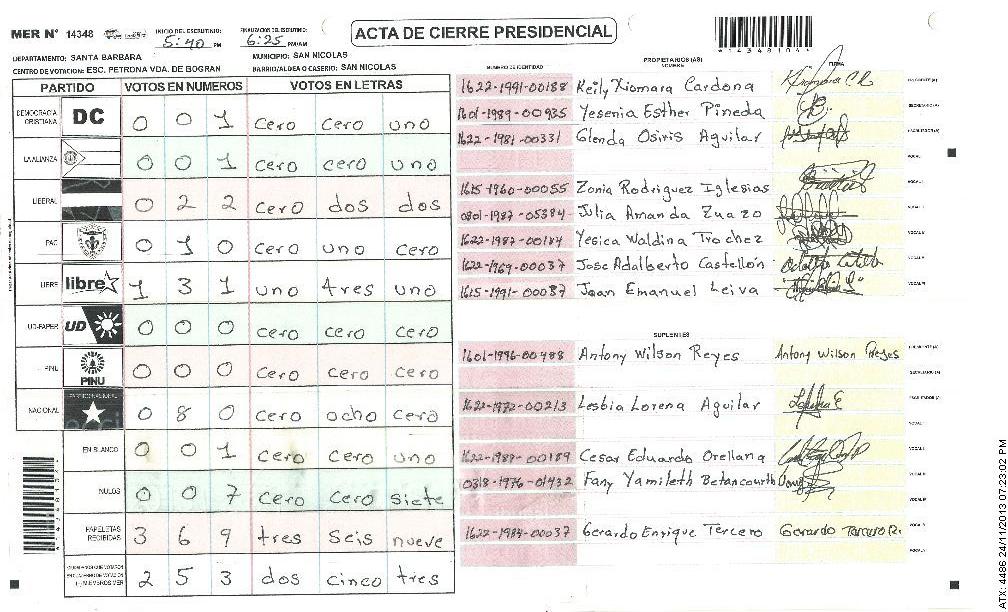 MER N° 14348
INICIO DEL ESCRUTINIO:
5:40 PM
FINALIZACION DEL ESCRUTINIO:
6:25 PM/AM
ACTA DE CIERRE PRESIDENCIAL
DEPARTAMENTO: SANTA BARBARA
MUNICIPIO: SAN NICOLAS
CENTRO DE VOTACION: ESC. PETRONA VDA. DE BOGRAN
BARRIO/ALDEA O CASERIO: SAN NICOLAS
PARTIDO VOTOS EN NUMEROS VOTOS EN LETRAS
DEMOCRACIA CRISTIANA DC 0 0 1 cero cero uno
LA ALIANZA 0 0 1 cero cero uno
LIBERAL 0 2 2 cero dos dos
PAC 0 1 0 cero uno cero
LIBRE libre 1 3 1 uno tres uno
UD-FAPER UD 0 0 0 cero cero cero
PINU PINU 0 0 0 cero cero cero
NACIONAL 0 8 0 cero ocho cero
EN BLANCO 0 0 1 cero cero uno
NULOS 0 0 7 cero cero siete
PAPELETAS RECIBIDAS 3 6 9 tres seis nueve
2 5 3 dos cinco tres
NUMERO DE IDENTIDAD
PROPIETARIOS (AS)
NOMBRE
FIRMA
1622-1991-00188 Keily Xiomara Cardona
1601-1989-00935 Yesenia Esther Pineda
1622-1981-00331 Glenda Osiris Aguilar
1615-1960-00055 Zonia Rodriguez Iglesias
0801-1987-05384 Julia Amanda Zuazo
1622-1987-00184 Yesica Waldina Trochez
1622-1969-00037 Jose Adalberto Castellón
1615-1991-00087 Joan Emanuel Leiva
SUPLENTES
1601-1996-00488 Antony Wilson Reyes Antony Wilson Reyes
1622-1972-00213 Lesbia Lorena Aguilar
1622-1987-00189 Cesar Eduardo Orellana
0318-1976-01432 Fany Yamileth Betancourth
1622-1984-00037 Gerardo Enrique Tercero Gerardo Tercero R.
ATX: 4486 24/11/2013 07:23:02 PM